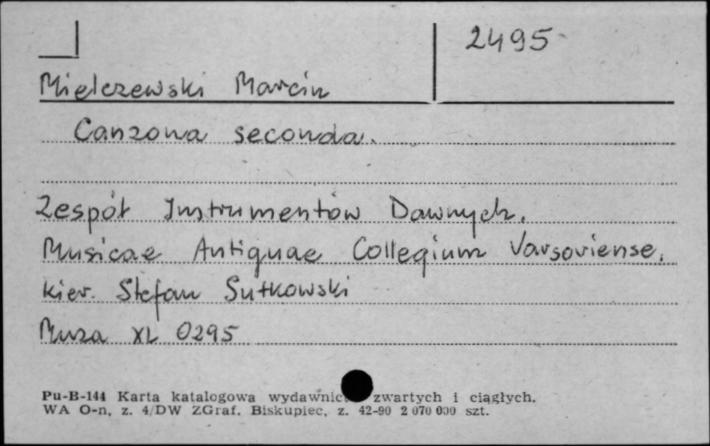 2495
Mielczewski Marcin
Canzona seconda.
Zespół Instrumentów Dawnych.
Musicae Antiquae Collegium Varsoviense.
kier. Stefan Sutkowski
Muza XL 0295
Pu-B-144 Karta katalogowa zwartych i ciągłych.
WA O-n, z. 4/DW ZGraf. Biskupiec, z. 42-90 2 070 000 szt.